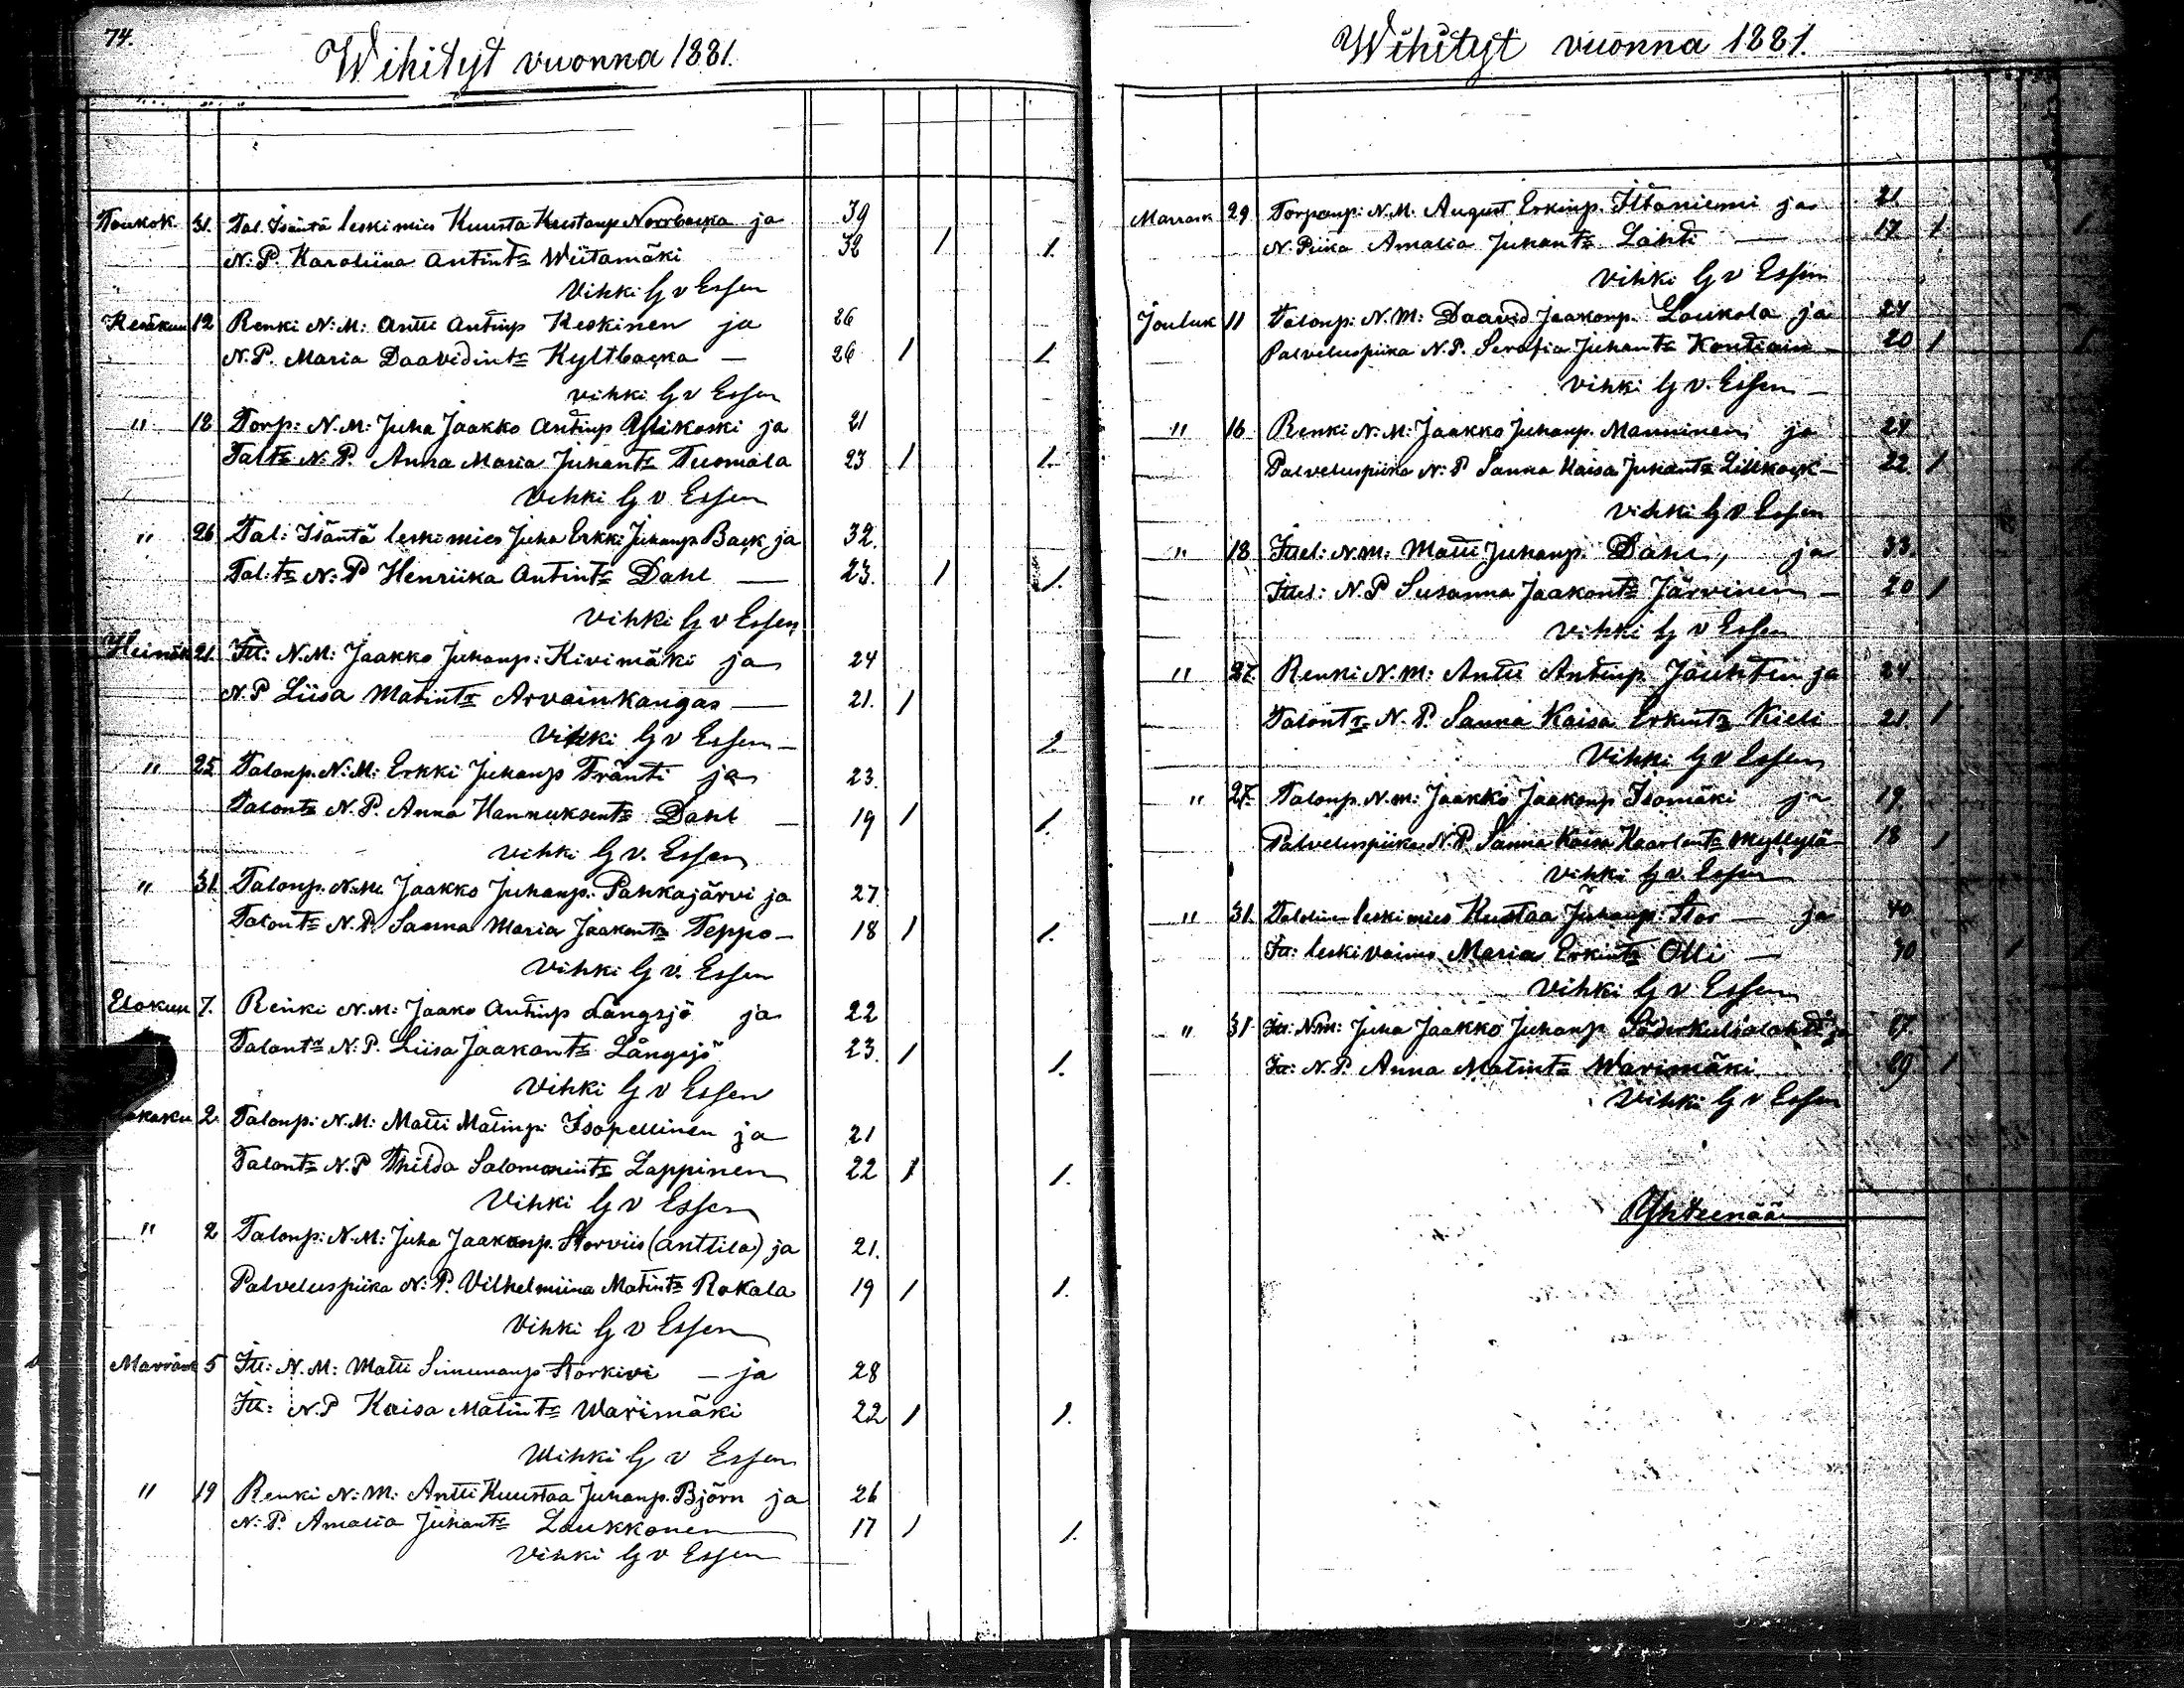 74.
Wihityt vuonna 1881.
Toukok. 31. Tal. Isäntä leskimies Kuusta Kustaup Norrbacka ja 39
N: P. Karoliina Antint:r Wiitamäki 32 1 1.
Vihki G v Essen
Kesäkuu 12 Renki N: M: Antti Antinp Keskinen ja 26
N. P. Maria Daavidint:r Kyltbacka — 26 1 1
vihki G v Essen
" 18 Torp: N. M: Juha Jaakko Antinp Ylikoski ja 21
Talt:r N: P. Anna Maria Juhant:r Tuomala 23 1 1.
Vihki G v Essen
" 26 Tal: Isäntä leskimies Juha Erkki Juhanp Back ja 32.
Tal:t:r N: P Henriika Antint:r Dahl — 23. 1 1.
Vihki G v Essen
Heinäk 21. Itl: N. M: Jaakko Juhanp: Kivimäki ja 24
N. P Liisa Matint:r Arvainkangas — 21. 1
Vihki G v Essen — 2.
" 25 Talonp. N: M: Erkki Juhanp Fränti ja 23.
Talont:r N. P. Anna Hannuksent:r Dahl — 19 1 1.
Vihki G v. Essen
" 31. Talonp. N: M Jaakko Juhanp. Pahkajärvi ja 27
Talont:r N. P. Sanna Maria Jaakont:r Teppo — 18 1 1.
Vihki G v. Essen
Elokuu 7. Renki N. M: Jaako Antinp Långsjö ja 22
Talont:r N: P. Liisa Jaakont:r Långsjö 23. 1 1.
Vihki G v Essen
2. Talonp: N. M: Matti Matinp: Isopellinen ja 21
Talont:r N. P Thilda Salomonint:r Lappinen 22 1 1.
Vihki G v Essen
" 2 Talonp: N. M: Juha Jaakkonp. Storviis (Anttila) ja 21.
Palveluspiika N: P. Vilhelmiina Matint:r Rokala 19 1 1.
Vihki G v Essen
Marrask 5 Itl: N. M: Matti Simunanp Storkivi — ja 28
Itl: N. P Kaisa Matint:r Warimäki 22 1 1.
Wihki G v Essen
" 19 Renki N: M: Antti Kuustaa Juhanp. Björn ja 26
N: P. Amalia Juhant:r Loukkonen 17 1 1.
Vihki G v Essen
Wihityt vuonna 1881.
Marrask 29 Torpanp: N. M. August Erkinp. Iltaniemi ja 21.
N. Piika Amalia Juhant:r Lahti — 17. 1. 1.
Vihki G v Essen
Jouluk 11 Talonp: N. M: Daavid Jaakonp. Loukola ja 24
Palveluspiika N. P. Serafia Juhant:r Kontiain — 20 1 1.
Vihki G v. Essen —
" 16 Renki N. M: Jaakko Juhanp. Manninen ja 24
Palveluspiika N: P Sanna Kaisa Juhant:r Lillkack — 22. 1
vihki G v Essen
" 18 Ittel: N. M: Matti Juhanp. Dahl, ja 33.
Ittel: N. P Susanna Jaakont:r Järvinen — 20 1
Vihki G v Essen
" 27. Renki N. M: Antti Antinp. Jauhtun ja 24.
Talont:r N. P. Sanna Kaisa Erkint:r Kieli 21. 1
Vihki G v Essen
" 27. Talonp. N. M: Jaakko Jaakonp Isomäki ja 19.
Palveluspiika N. P. Sanna Kaisa Kaarlont:r Myllylä 18 1
Vihki G v. Essen
" 31. leskimies Kustaa Juhanp: Stor — ja 40
Itl: leskivaimo Maria Erkint:r Olli — 40 1
Vihki G v Essen
" 31 Itl: N. M: Juha Jaakko Juhanp ja
Itl: N. P. Anna Matint:r Warimäki 29 1
Vihki G v Essen
Yhteensä